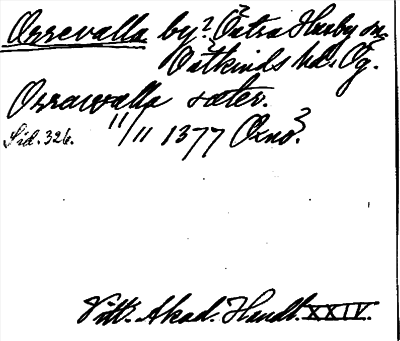 Orrevalla by? Östra Husby sn.
Östkinds hd. Ög.
Orrawalla sæter.
Sid. 326. 11/11 1377 Orno?
Vitt. Akad. Handl. XXIV.